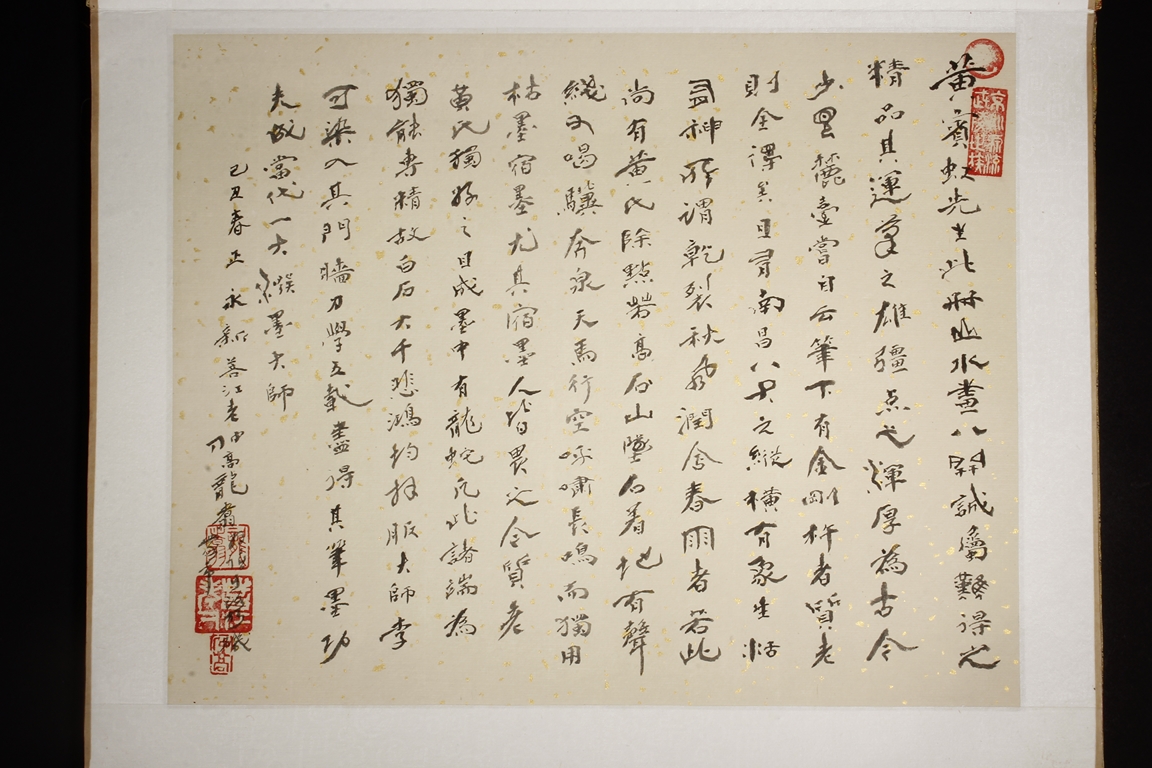 黃賓虹先生此冊山水畫八開誠屬難得之
精品其運筆之雄疆点也渾厚為古今
少 麓臺嘗自云筆下有金剛杵者質老
則全 矣且 南昌八大之縱橫有象生活
有神所謂乾裂秋風潤含春雨者若此
尚有黃氏除點若高石山墜石著地有聲
綫又喝驥奔泉天馬行空 嘯長鳴而獨用
枯墨宿墨尤其宿墨人皆畏之今質老
黃氏獨好之且成墨中有龍蛇凡此諸端為
獨能專精故白石大千悲鴻均拜服大師李
可染入其門牆力學五載盡得其筆墨功
夫成當代一大 墨大師
己丑春正永新 江老 高龍